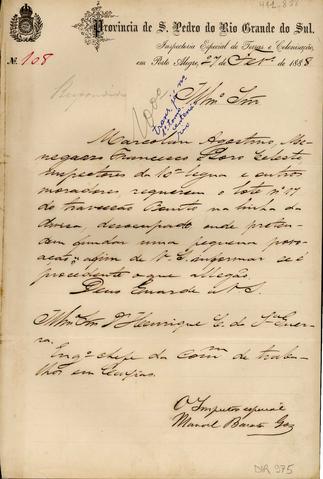 Provincia de S. Pedro do Rio Grande do Sul.
Inspectoria Especial de Terras e Colonisação,
Nº 108
em Porto Alegre, 27 de Fevº de 1888
Illmº Snr
Marcolan Agostino, Me-
negasso Francesco, Pedro Celeste
Inspectores da 10ª legua e outros
moradores, requerem o lote nº 17
do travessão Benito na linha da
divisa, desocupado onde preten-
dem fundar uma pequena povo-
ação, afim de V. S. informar se é
procedente o que allegão.
Deus Guarde a V. S.
Illmº Snr Dr Henrique C. de
Engº chefe da Comm de traba-
lhos em Caxias.
O Inspector especial
Manoel Barata Góes
DIR 975